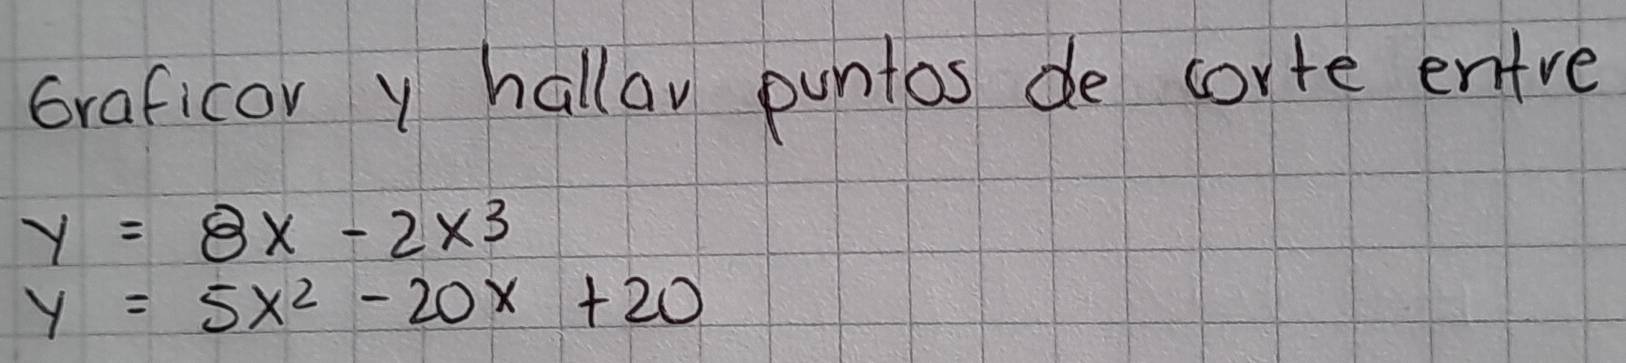 Graficar y hallar puntos de corte entre
y = 8x - 2x3
y = 5x² - 20x + 20